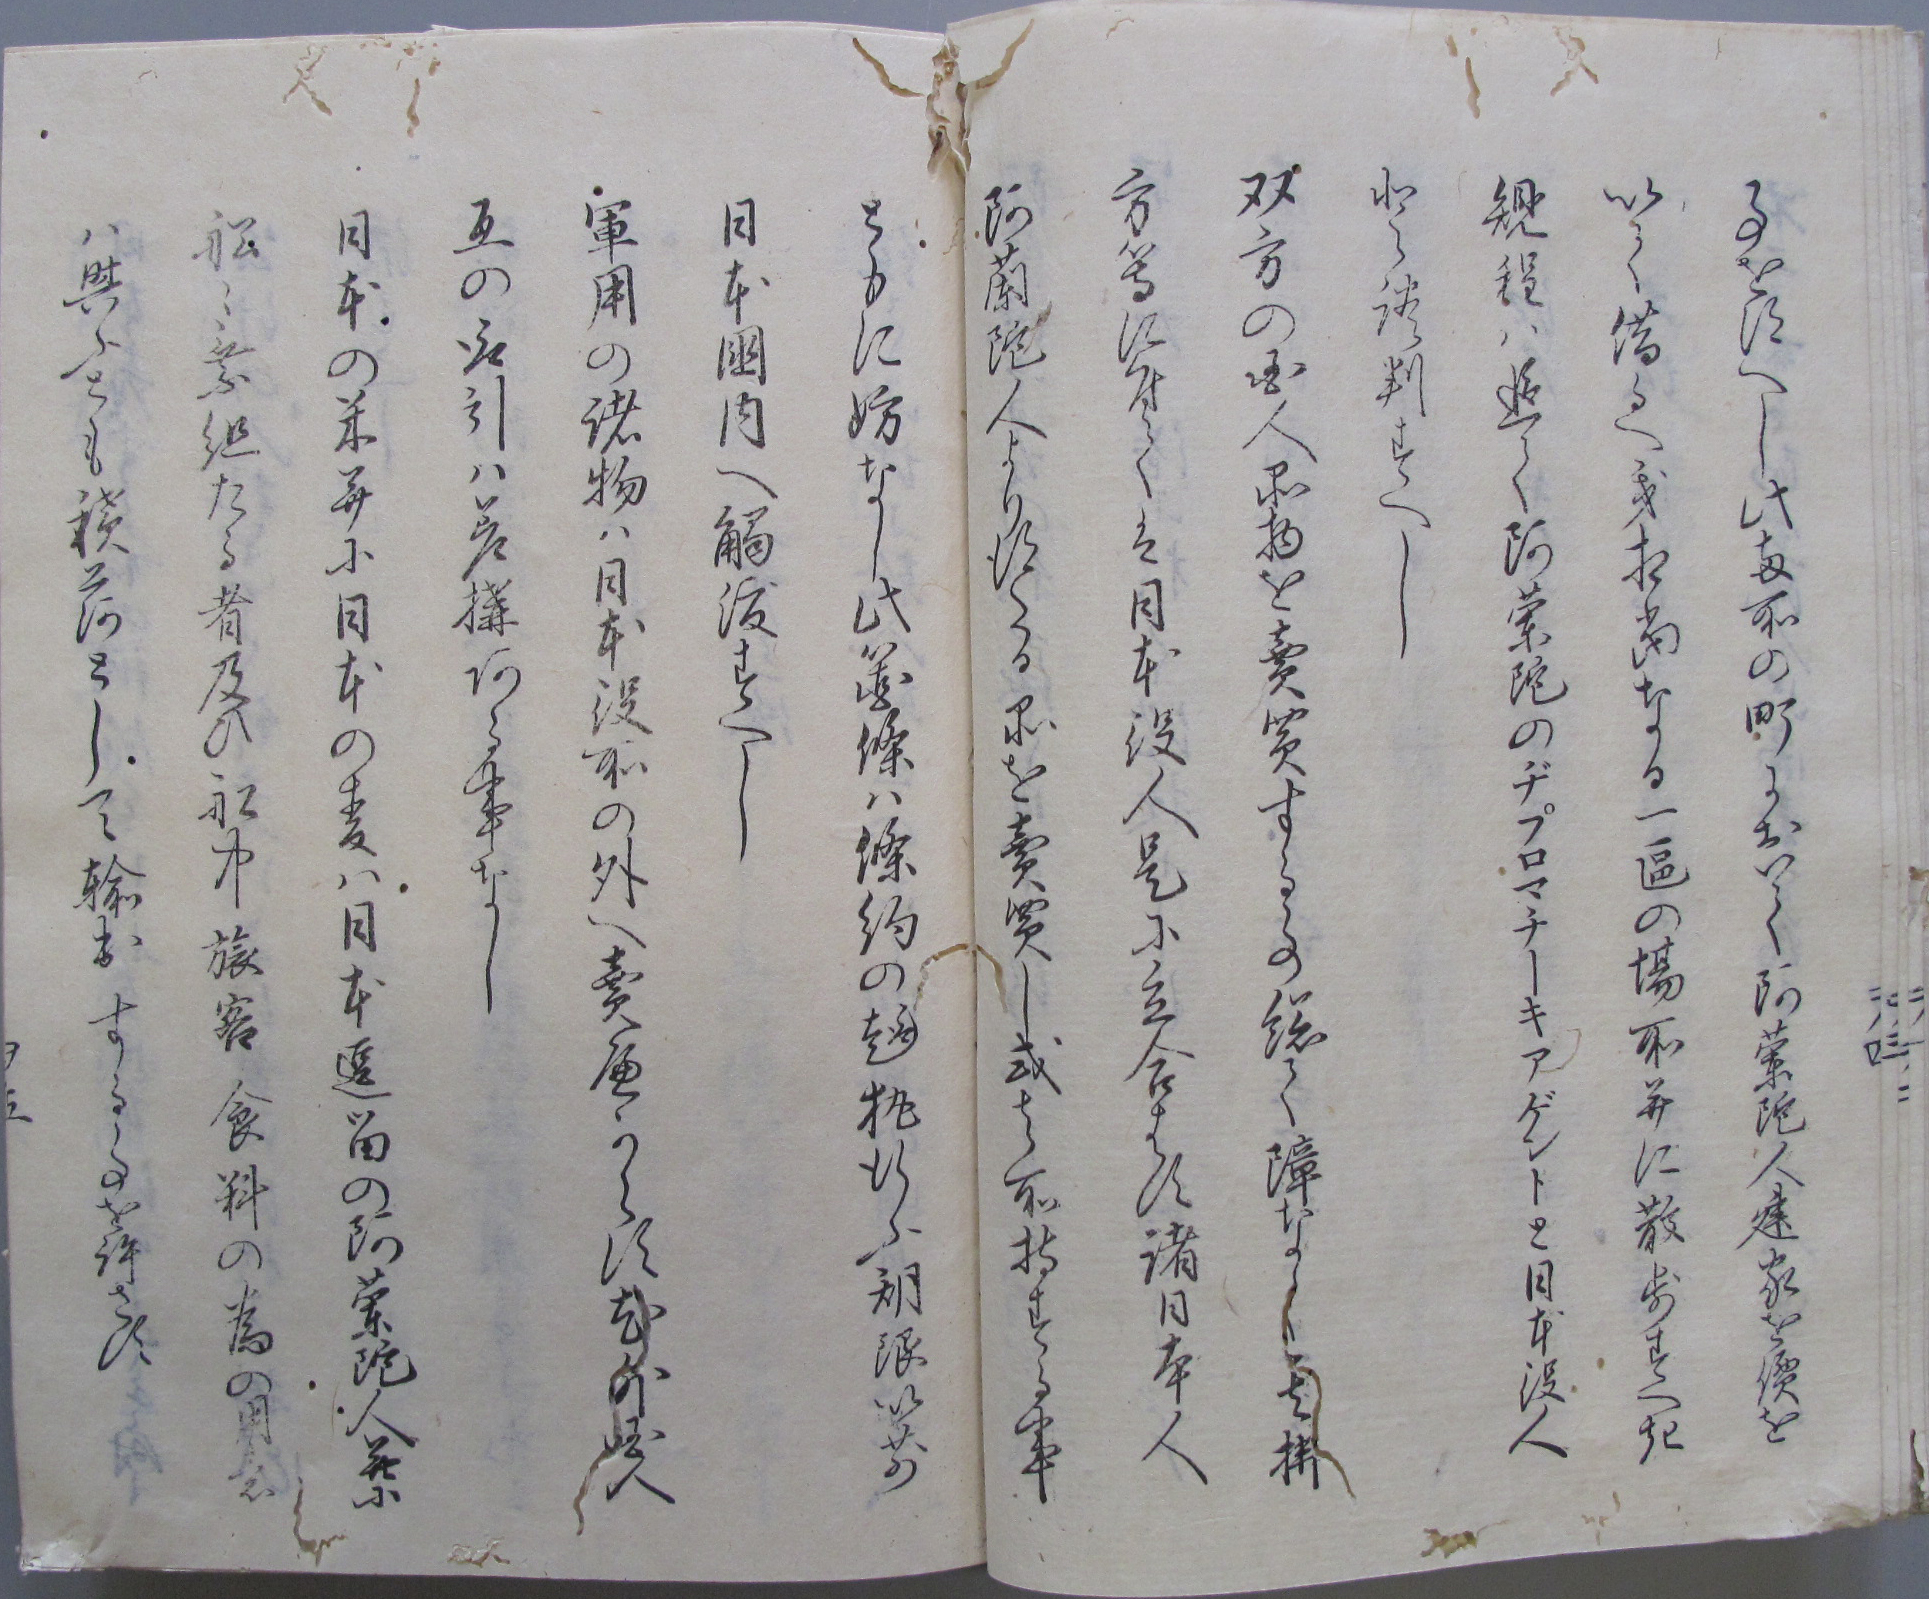 事を得へし此両所の町において阿蘭陀人建家を價を
以て借るへき相當なる一區の場所并に散歩すへき
規程ハ追て阿蘭陀のヂプロマチーキアゲントと日本役人
と談判すへし
双方の國人品物を賣買する事総て障なし其拂
方等に付てハ日本役人是に立合はす諸日本人
阿蘭陀人より得たる品を賣買し或は所持する事
ともに妨なし此箇條ハ條約の趣執行ふ期限以前
日本國内へ觸渡すへし
軍用の諸物ハ日本役所の外へ賣へからす尤外國人
互の取引ハ差構ある事なし
日本の米并に日本の麦ハ日本逗留の阿蘭陀人并に
船々乗組たる者及ひ船中旅客食料の為の用意
ハ與ふとも積荷として輸出する事を許さす